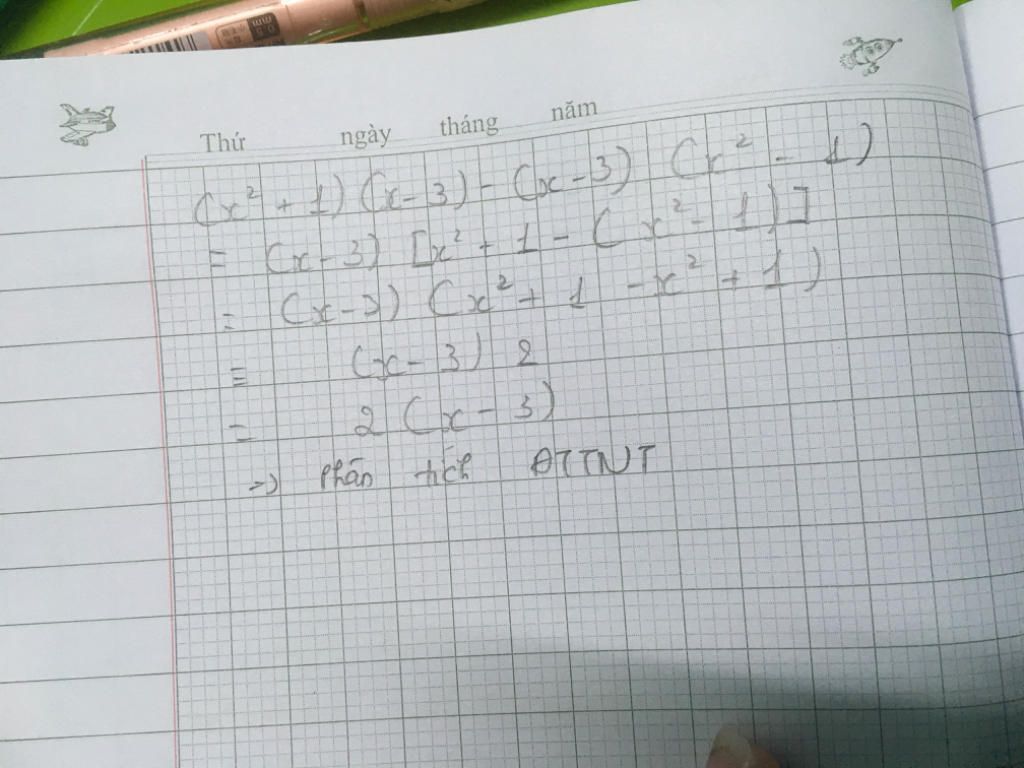 Thứ ngày tháng năm
(x² + 1) (x - 3) - (x - 3) (x² - 1)
= (x - 3) [x² + 1 - (x² - 1)]
= (x - 3) (x² + 1 - x² + 1)
= (x - 3) 2
= 2 (x - 3)
=> Phân tích ĐTTNT